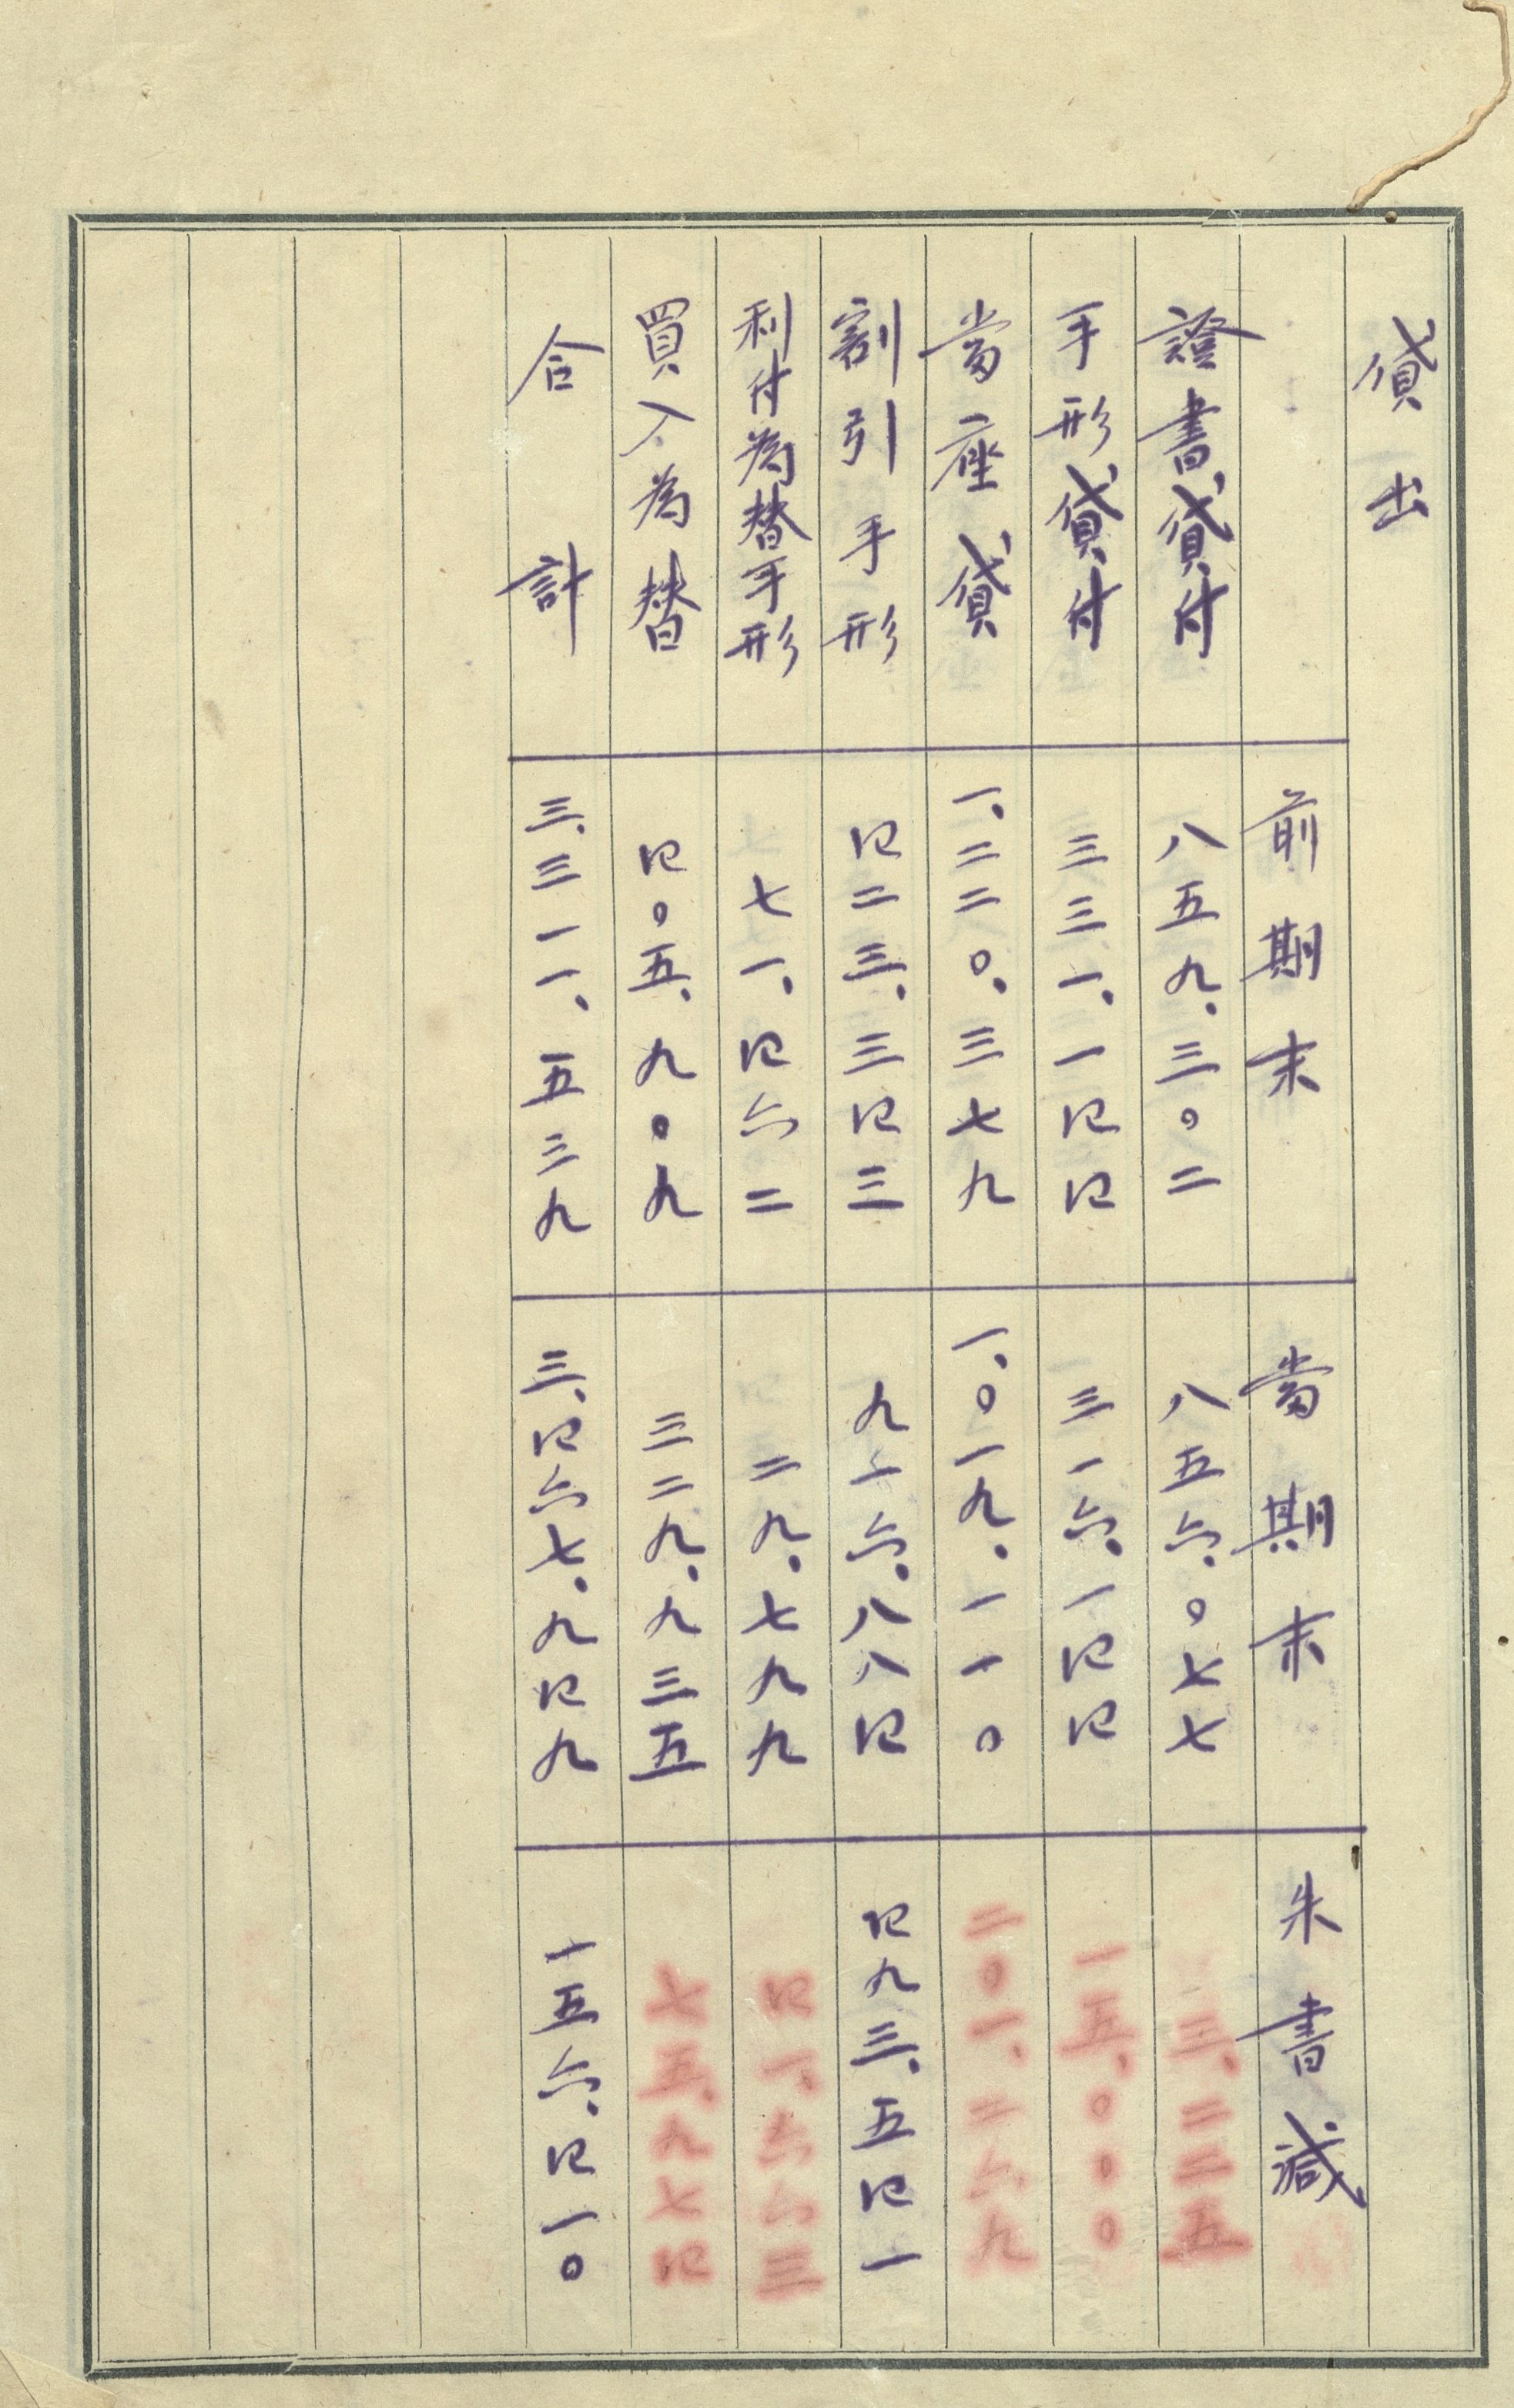 貸出
前期末 當期末 朱書減
證書貸付 八五九、三〇二 八五六、〇七七 三、二二五
手形貸付 三三一、一四四 三一六、一四四 一五、〇〇〇
當座貸 一、二二〇、三七九 一、〇一九、一一〇 二〇一、二六九
割引手形 四二三、三四三 九一六、八八四 四九三、五四一
利付為替手形 七一、四六二 二九、七九九 四一、六六三
買入為替 四〇五、九〇九 三二九、九三五 七五、九七四
合計 三、三一一、五三九 三、四六七、九四九 一五六、四一〇